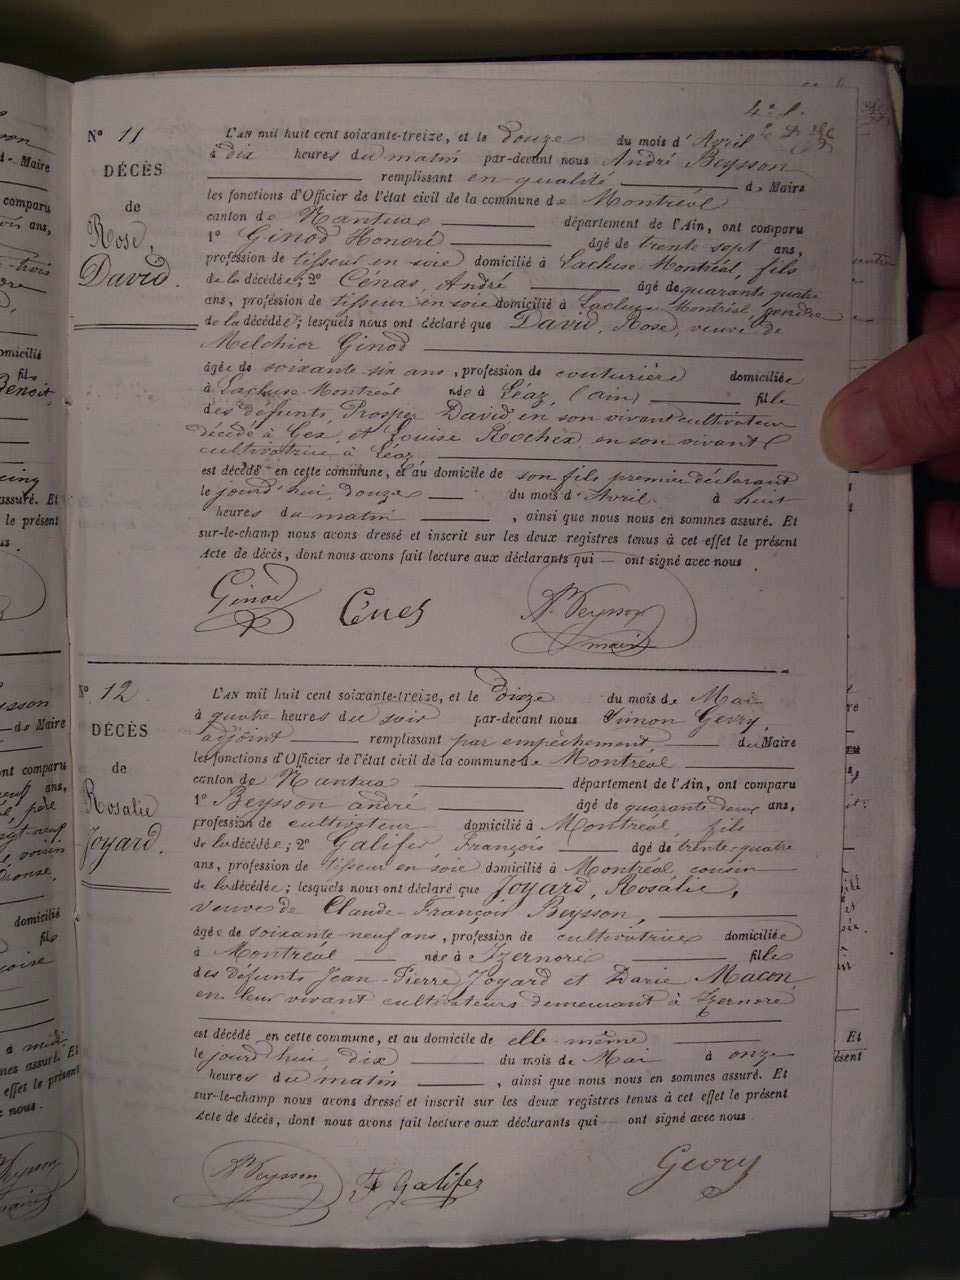 4e f.
No 11
DÉCÈS
de
Rose,
David.
L'AN mil huit cent soixante-treize, et le douze du mois d'Avril
à dix heures du matin par-devant nous André Beysson
remplissant en qualité de Maire
les fonctions d'Officier de l'état civil de la commune de Montréal
canton de Nantua département de l'Ain, ont comparu
1o Ginod Honoré âgé de trente sept ans,
profession de tisseur en soie domicilié à Lacluse Montréal, fils
de la décédée; 2o Cénas, André âgé de quarante quatre
ans, profession de tisseur en soie domicilié à Lacluse Montréal, gendre
de la décédée; lesquels nous ont déclaré que David, Rose, veuve de
Melchior Ginod
âgée de soixante six ans, profession de couturière domiciliée
à Lacluse Montréal née à Léaz, (ain) fille
des défunts Prosper David en son vivant cultivateur
décédé à Gex, et Louise Rochex, en son vivant
cultivatrice à Léaz,
est décédé en cette commune, et au domicile de son fils premier déclarant
le jourd'hui, douze du mois d'Avril à huit
heures du matin, ainsi que nous nous en sommes assuré. Et
sur-le-champ nous avons dressé et inscrit sur les deux registres tenus à cet effet le présent
Acte de décès, dont nous avons fait lecture aux déclarants qui — ont signé avec nous.
Ginod
A. Beysson
maire
No 12
DÉCÈS
de
Rosalie
Joyard.
L'AN mil huit cent soixante-treize, et le dix du mois de Mai
à quatre heures du soir par-devant nous Simon Gevry,
adjoint remplissant par empêchement, du Maire
les fonctions d'Officier de l'état civil de la commune de Montréal
canton de Nantua département de l'Ain, ont comparu
1o Beysson andré âgé de quarante-deux ans,
profession de cultivateur domicilié à Montréal, fils
de la décédée; 2o Galifer, François âgé de trente-quatre
ans, profession de tisseur en soie domicilié à Montréal cousin
de la décédée; lesquels nous ont déclaré que Joyard, Rosalie,
veuve de Claude-François Beysson,
âgée de soixante neuf ans, profession de cultivatrice domiciliée
à Montréal née à Izernore fille
des défunts Jean-Pierre Joyard et Marie Macon
en leur vivant cultivateurs demeurant à Izernore
est décédé en cette commune, et au domicile de elle-même
le jourd'hui dix du mois de Mai à onze
heures du matin, ainsi que nous nous en sommes assuré. Et
sur-le-champ nous avons dressé et inscrit sur les deux registres tenus à cet effet le présent
Acte de décès, dont nous avons fait lecture aux déclarants qui — ont signé avec nous.
A. Beysson
F. Galifer
Gevry